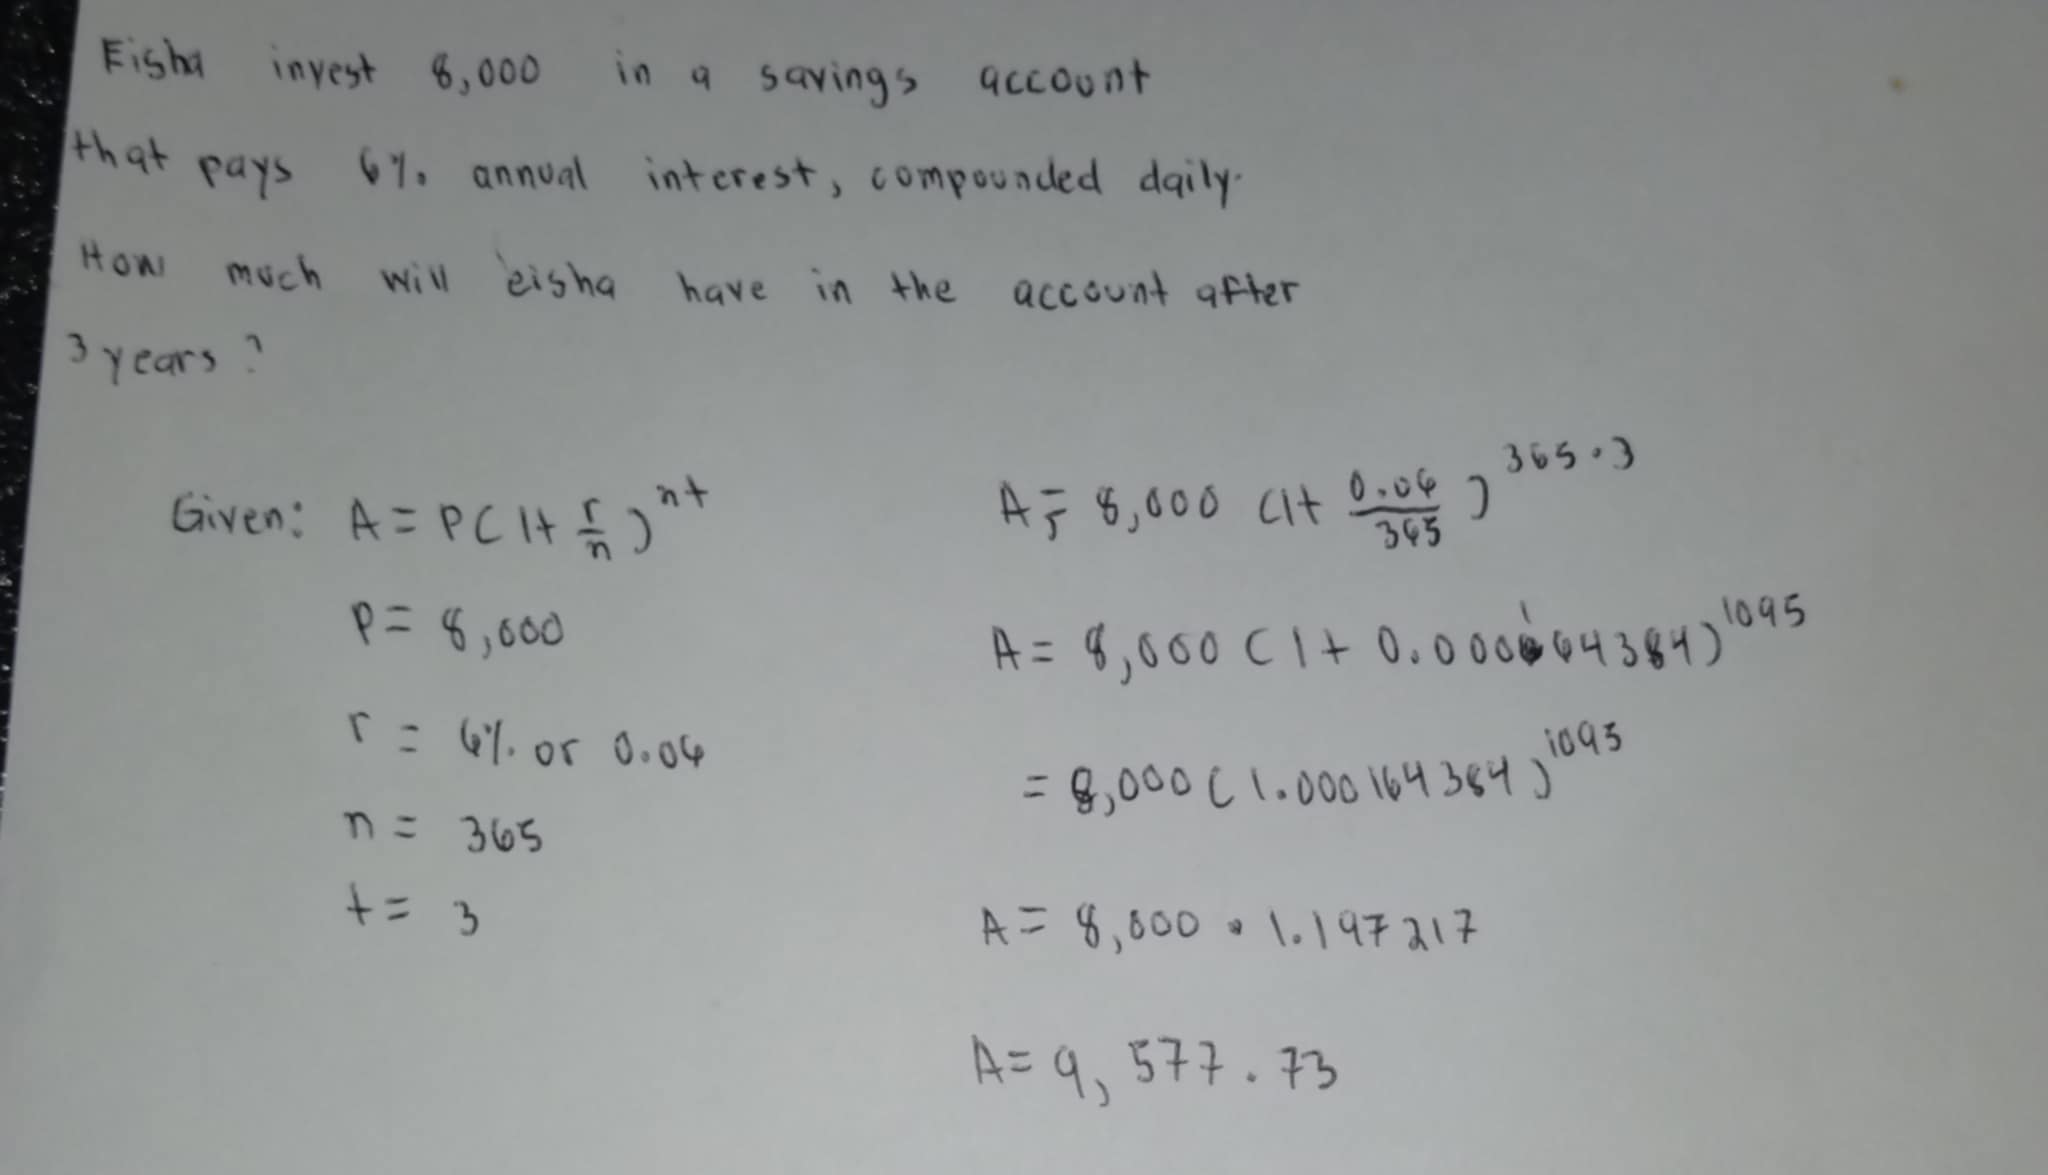 Eisha invest 8,000 in a savings account
that pays 6% annual interest, compounded daily.
How much will eisha have in the account after
3 years?
Given: A = P(1+ r/n)^nt
P = 8,000
r = 6% or 0.06
n = 365
t = 3
A = 8,000 (1+ 0.06/365)^365•3
A = 8,000 (1+ 0.000164384)^1095
= 8,000 (1.000164384)^1095
A = 8,000 • 1.197217
A = 9,577.73